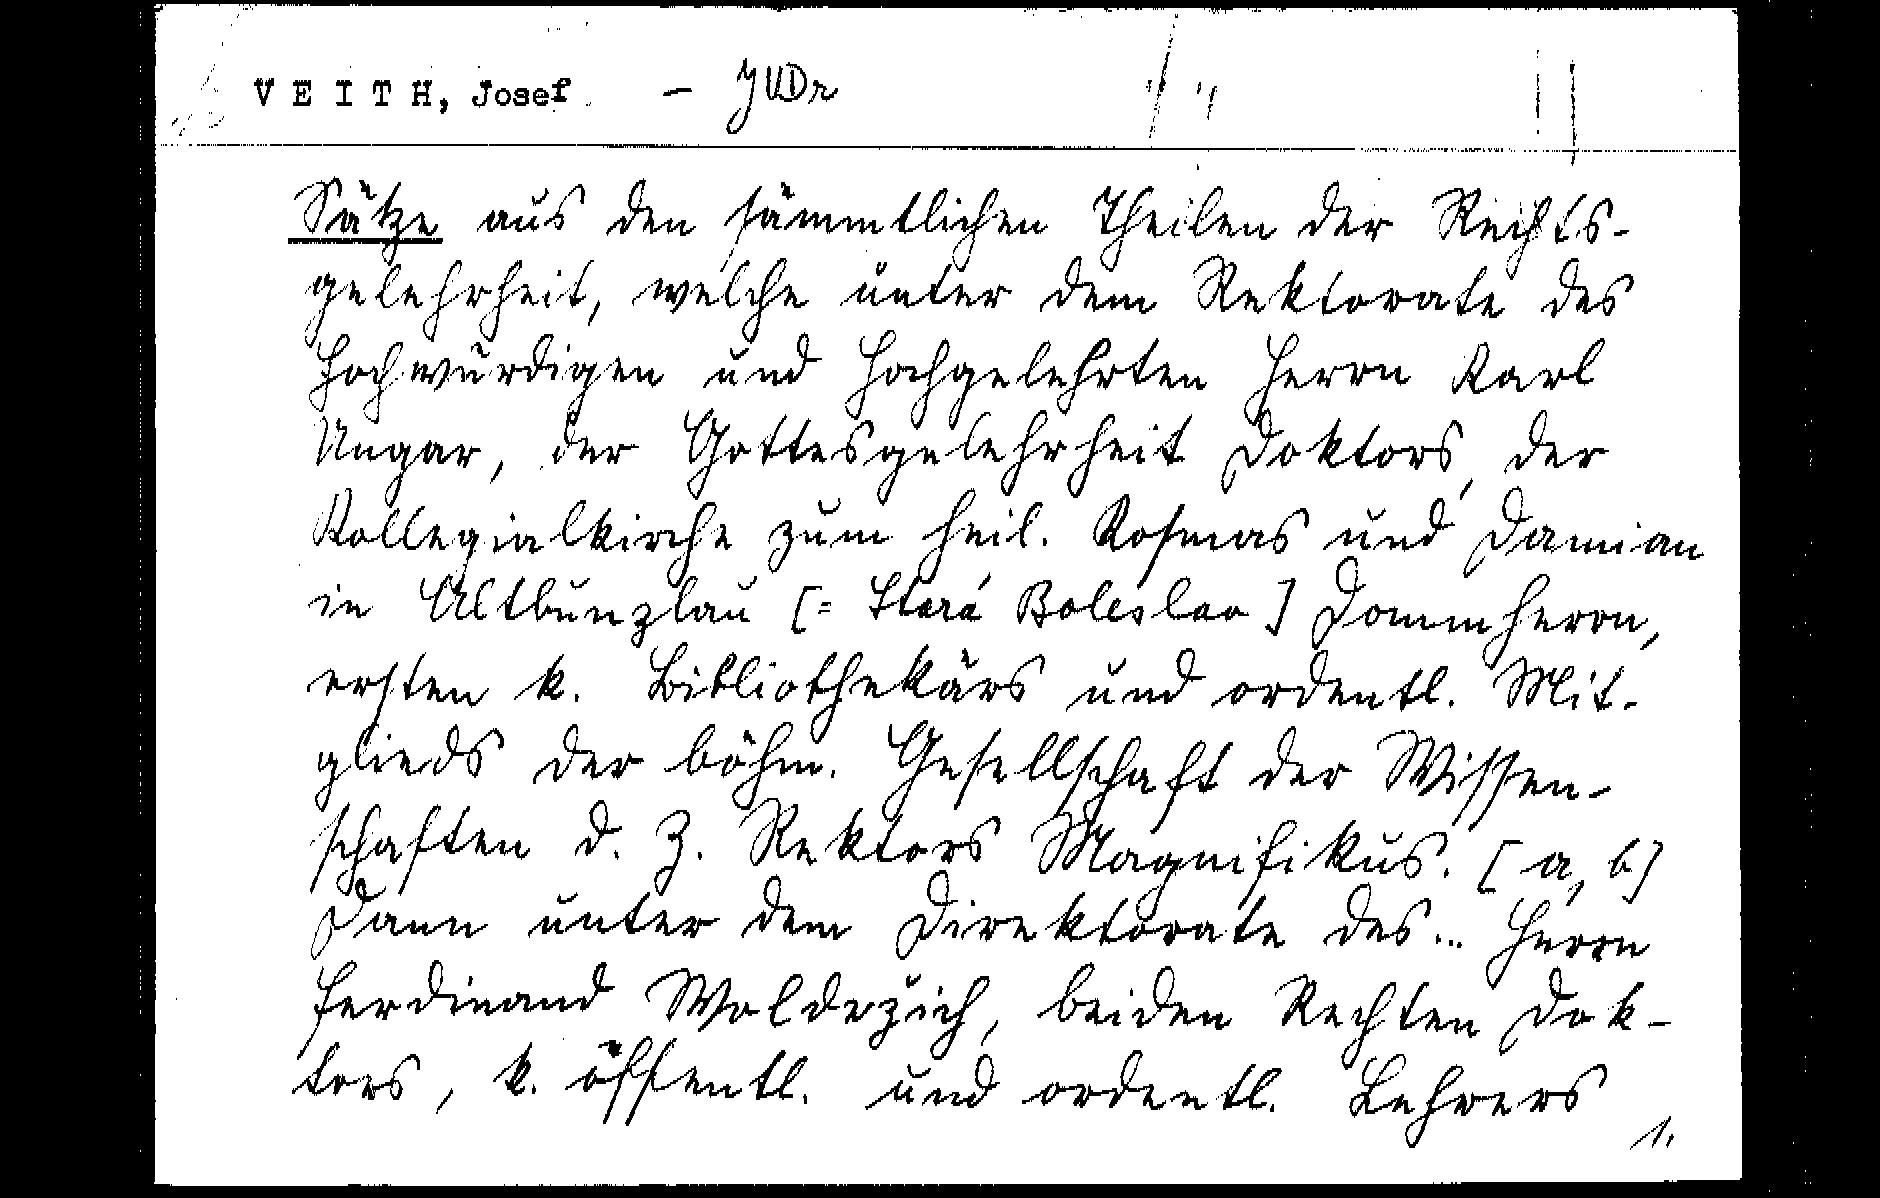 VEITH, Josef - JUDr
Sätze aus den sämmtlichen Theilen der Rechts-
gelehrheit, welche unter dem Rektorate des
Hochwürdigen und Hochgelehrten Herrn Karl
Ungar, der Gottesgelehrheit Doktors, der
Kollegialkirche zum heil. Kosmas und Damian
in Altbunzlau [= Stará Boleslav] Dommherrn,
ersten k. Bibliothekärs und ordentl. Mit-
glieds der böhm. Gesellschaft der Wissen-
schaften d. Z. Rektors Magnifikus. [a, b]
Dann unter dem Direktorate des... Herrn
Ferdinand Woldržich, beiden Rechten Dok-
tors, k. öffentl. und ordentl. Lehrers
1.